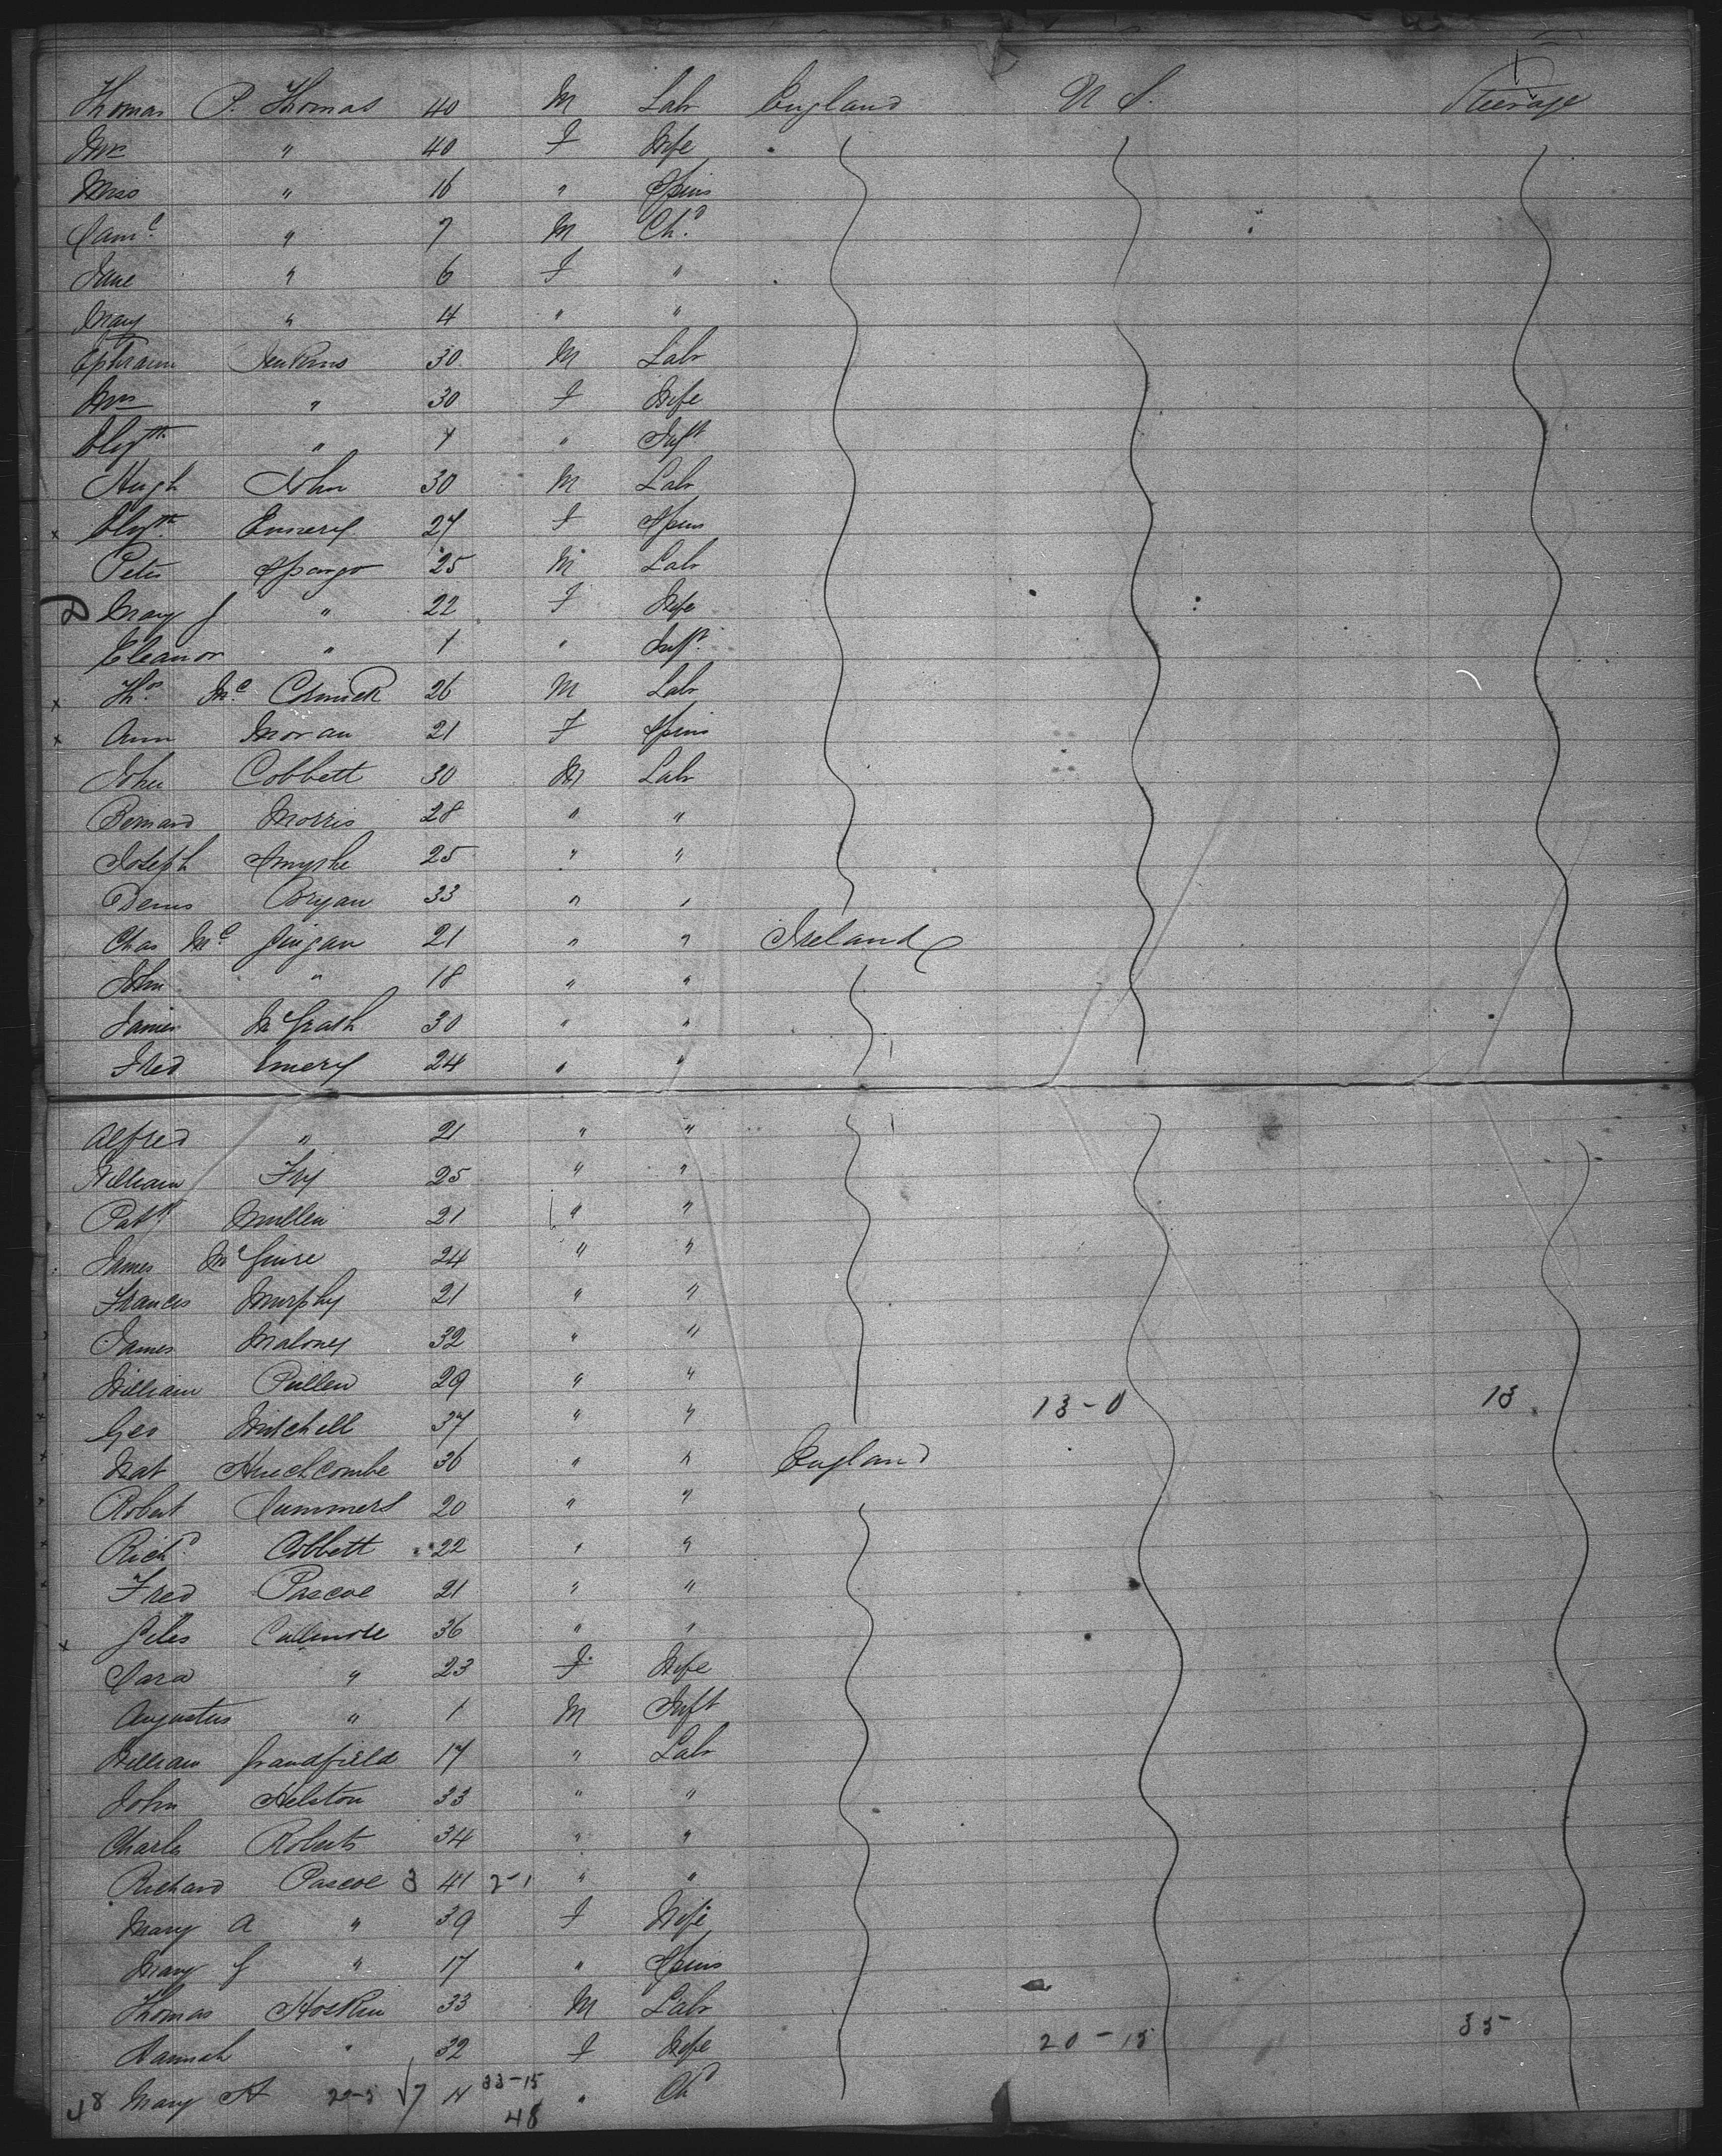 Thomas P. Thomas 40 M Labr England U S. Steerage
Mrs " 40 F Wife
Miss " 16 " Spins
Saml. " 7 M Chd.
Jane " 6 F "
Mary " 4 " "
Ephraim Jenkins 30 M Labr
Mrs " 30 F Wife
Elizth " 1 " Inft
Hugh John 30 M Labr
x Elizth. Emery 27 F Spins
Peter Spargo 25 M Labr
D Mary J " 22 F Wife
Eleanor " 1 " Inft.
x Thos. Mc. Cormick 26 M Labr
x Ann Moran 21 F Spins
John Cobbett 30 M Labr
Bernard Morris 28 " "
Joseph Smythe 25 " "
Denis Bryan 33 " "
Chas Mc. 21 " " Ireland
John " 18 " "
James McGrath 30 " "
Fred Emery 24 " "
Alfred " 21 " "
William Fry 25 " "
Patk Mullen 21 " "
James McGuire 24 " "
Francis Murphy 21 " "
James Maloney 32 " "
William Pullen 29 " "
Geo Mitchell 37 " " 13-0 13
Nat Hinchcombe 36 " " England
Robert Summers 20 " "
Richd. Cobbett 22 " "
Fred Pascoe 21 " "
x Giles Cullimore 36 " "
Sara " 23 F Wife
Augustus " 1 M Inft
William Grandfield 17 " Labr
John Helston 33 " "
Charles Roberts 34 " "
Richard Pascoe 3 41 2-1 " "
Mary A " 39 F Wife
Mary J " 17 " Spins
Thomas Hoskin 33 M Labr
Hannah " 32 F Wife 20-15 35
48 Mary A 14 33-15 " Chd
48